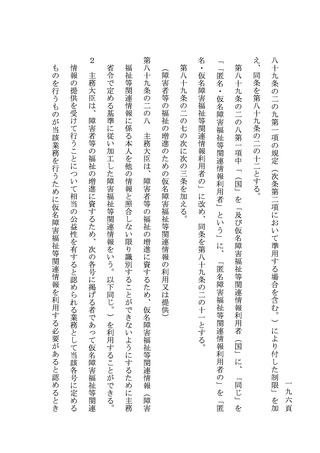 一九六頁
八十九条の二の九第一項の規定（次条第二項において準用する場合を含む。）により付した制限」を加
え、同条を第八十九条の二の十二とする。
第八十九条の二の八第一項中「（国」を「及び仮名障害福祉等関連情報利用者（国」に、「同じ」を
「「匿名・仮名障害福祉等関連情報利用者」という」に、「匿名障害福祉等関連情報利用者の」を「匿
名・仮名障害福祉等関連情報利用者の」に改め、同条を第八十九条の二の十一とする。
第八十九条の二の七の次に次の三条を加える。
（障害者等の福祉の増進のための仮名障害福祉等関連情報の利用又は提供）
第八十九条の二の八　主務大臣は、障害者等の福祉の増進に資するため、仮名障害福祉等関連情報（障害
福祉等関連情報に係る本人を他の情報と照合しない限り識別することができないようにするために主務
省令で定める基準に従い加工した障害福祉等関連情報をいう。以下同じ。）を利用することができる。
２　主務大臣は、障害者等の福祉の増進に資するため、次の各号に掲げる者であって仮名障害福祉等関連
情報の提供を受けて行うことについて相当の公益性を有すると認められる業務として当該各号に定める
ものを行うものが当該業務を行うために仮名障害福祉等関連情報を利用する必要があると認めるとき